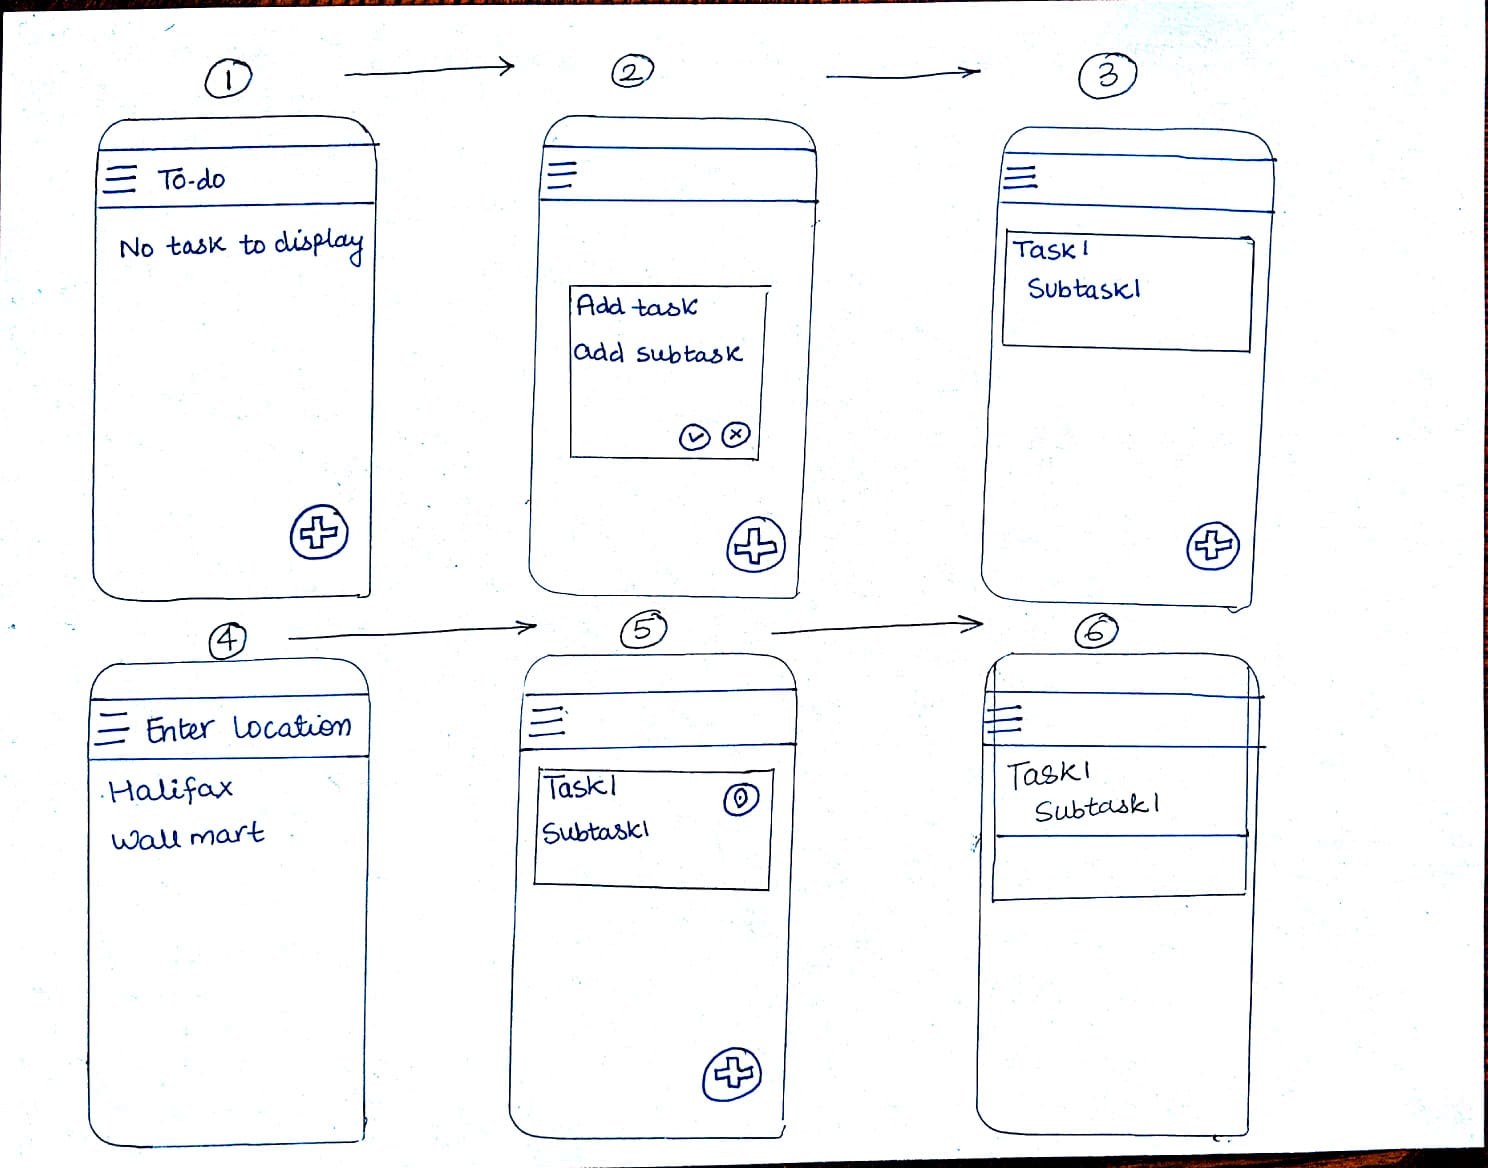 1
2
3
To-do
No task to display
Add task
add subtask
Task1
Subtask1
4
5
6
Enter Location
Halifax
Wall mart
Task1
Subtask1
Task1
Subtask1